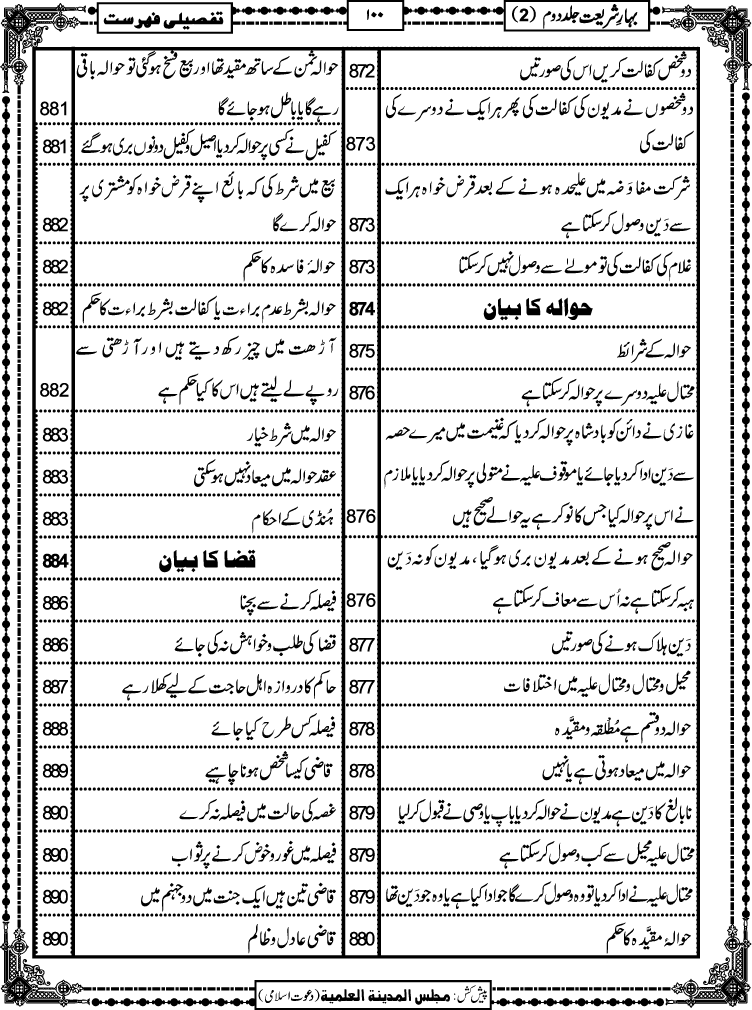 بہارِشریعت جلد دوم (2)
۱۰۰
تفصیلی فہرست
دو شخص کفالت کریں اس کی صورتیں 872
دو شخصوں نے مدیون کی کفالت کی پھر ہر ایک نے دوسرے کی
کفالت کی 873
شرکت مفاوَضہ میں علیحدہ ہونے کے بعد قرض خواہ ہر ایک
سے دَین وصول کر سکتا ہے 873
غلام کی کفالت کی تو مولےٰ سے وصول نہیں کر سکتا 873
حوالہ کا بیان 874
حوالہ کے شرائط 875
محتال علیہ دوسرے پر حوالہ کر سکتا ہے 876
غازی نے دائن کو بادشاہ پر حوالہ کر دیا کہ غنیمت میں میرے حصہ
سے دَین ادا کر دیا جائے یا موقوف علیہ نے متولی پر حوالہ کر دیا یا ملازم
نے اس پر حوالہ کیا جس کا نوکر ہے یہ حوالے صحیح ہیں 876
حوالہ صحیح ہونے کے بعد مدیون بری ہو گیا، مدیون کو نہ دَین
ہبہ کر سکتا ہے نہ اُس سے معاف کر سکتا ہے 876
دَین ہلاک ہونے کی صورتیں 877
محیل و محتال و محتال علیہ میں اختلافات 877
حوالہ دو قسم ہے مُطْلقہ و مقیَّدہ 878
حوالہ میں میعاد ہوتی ہے یا نہیں 878
نابالغ کا دَین ہے مدیون نے حوالہ کر دیا باپ یا وصی نے قبول کر لیا 879
محتال علیہ محیل سے کب وصول کر سکتا ہے 879
محتال علیہ نے ادا کر دیا تو وہ وصول کرے گا جو ادا کیا ہے یا وہ جو دَین تھا 879
حوالۂ مقیَّدہ کا حکم 880
حوالہ ثمن کے ساتھ مقید تھا اور بیع فسخ ہو گئی تو حوالہ باقی
رہے گا یا باطل ہو جائے گا 881
کفیل نے کسی پر حوالہ کر دیا اصیل و کفیل دونوں بری ہو گئے 881
بیع میں شرط کی کہ بائع اپنے قرض خواہ کو مشتری پر
حوالہ کرے گا 882
حوالۂ فاسدہ کا حکم 882
حوالہ بشرط عدم براءت یا کفالت بشرط براءت کا حکم 882
آڑھت میں چیز رکھ دیتے ہیں اور آڑھتی سے
روپے لے لیتے ہیں اس کا کیا حکم ہے 882
حوالہ میں شرط خیار 883
عقد حوالہ میں میعاد نہیں ہو سکتی 883
ہُنڈی کے احکام 883
قضا کا بیان 884
فیصلہ کرنے سے بچنا 886
قضا کی طلب و خواہش نہ کی جائے 886
حاکم کا دروازہ اہل حاجت کے لیے کھلا رہے 887
فیصلہ کس طرح کیا جائے 888
قاضی کیسا شخص ہونا چاہیے 889
غصہ کی حالت میں فیصلہ نہ کرے 890
فیصلہ میں غور و خوض کرنے پر ثواب 890
قاضی تین ہیں ایک جنت میں دو جہنم میں 890
قاضی عادل و ظالم 890
پیش کش: مجلس المدینۃ العلمیۃ (دعوتِ اسلامی)